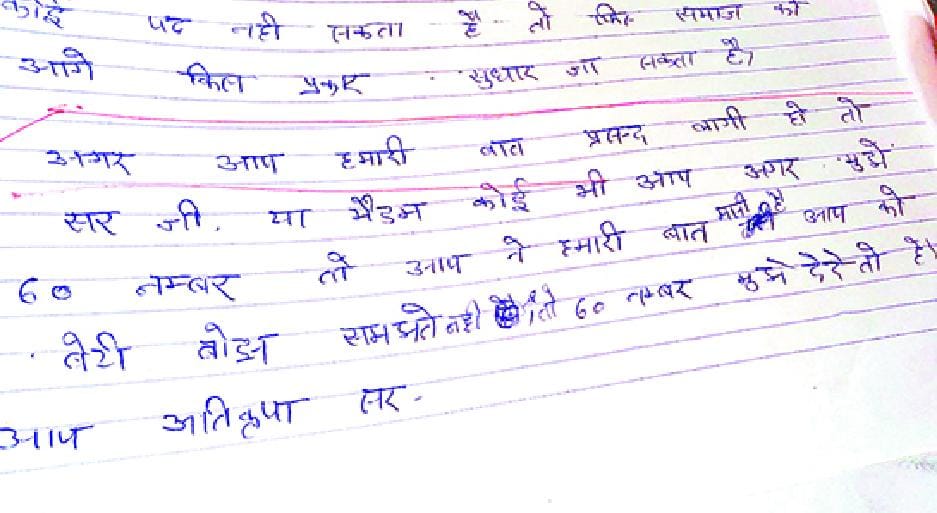 कोई पद नही सकता है तो फिर समाज को
आगे किस प्रकार सुधार जा सकता है,
अगर आप हमारी बात प्रसन्द लागी हो तो
सर जी. या मैडम कोई भी आप अगर मुझे
60 नम्बर तो आप ने हमारी बात मानी है आप को
बोझ समझते नही तो 60 नम्बर मुझे देदे तो है।
आप अतिकृपा सर.